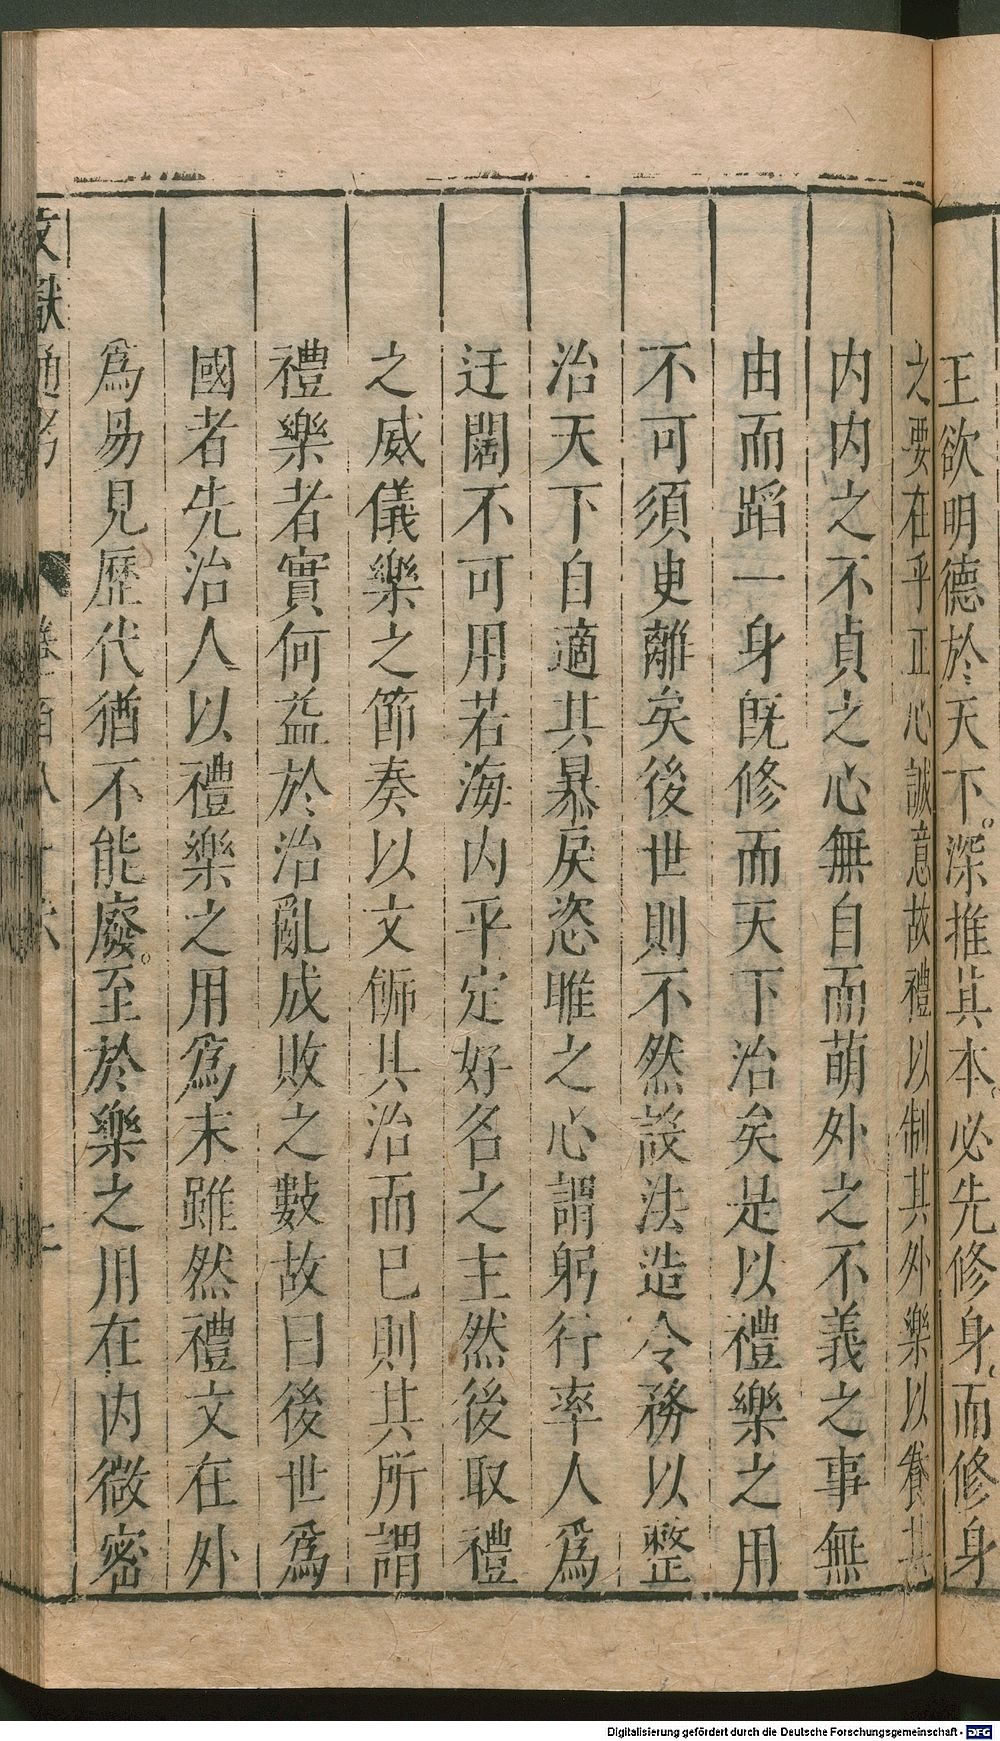 王欲明德於天下深推其本必先修身而修身
之要在乎正心誠意故禮以制其外樂以養其
内内之不貞之心無自而萌外之不義之事無
由而蹈一身既修而天下治矣是以禮樂之用
不可須臾離矣後世則不然設法造令務以整
治天下自適其暴戾恣睢之心謂躬行率人為
迂闊不可用若海内平定好名之主然後取禮
之威儀樂之節奏以文飾其治而已則其所謂
禮樂者實何益於治亂成敗之數故曰後世為
國者先治人以禮樂之用為末雖然禮文在外
為易見歷代猶不能廢至於樂之用在内微密
文獻通考 卷一百八十六
Digitalisierung gefördert durch die Deutsche Forschungsgemeinschaft - DFG